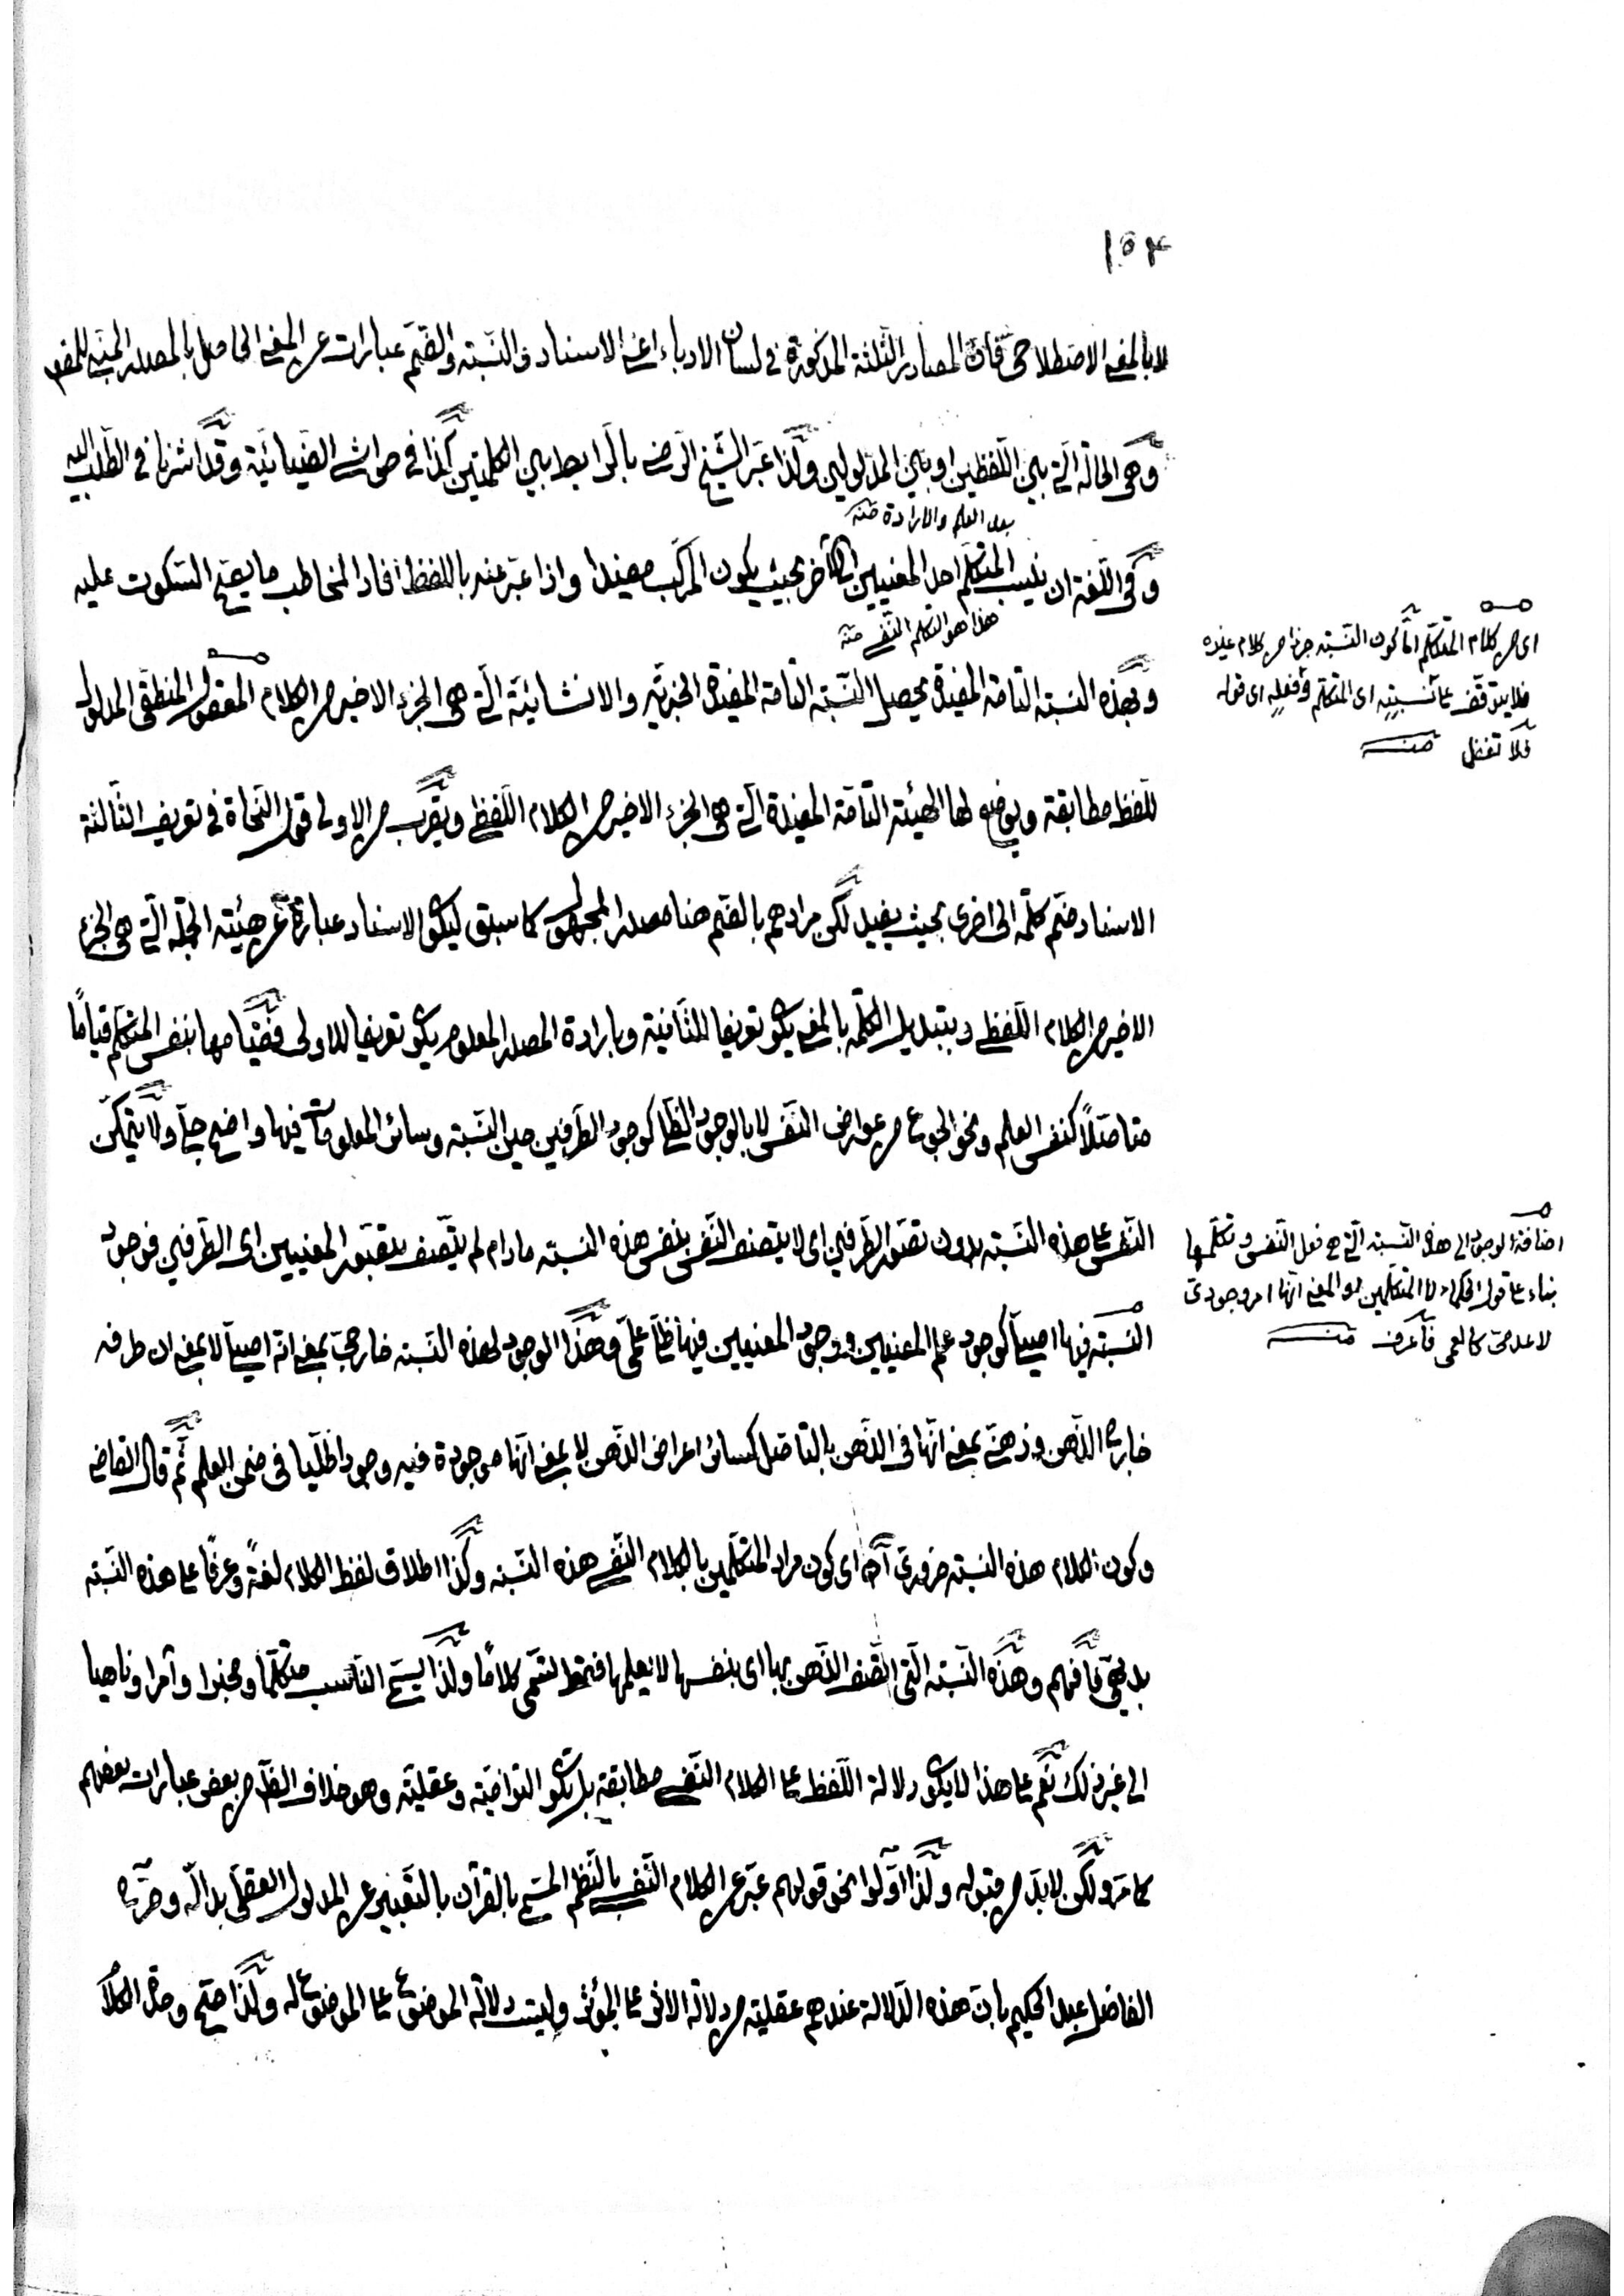 ١٥٤
لا بالمعنى الاصطلاحى فان المصادر الثلثة المذكورة فى لسان الادباء اعنى الاسناد والنسبة والضم عبارات عن المعنى الحاصل بالمصدر المبنى للمفعول
وهى الحالة التى بين اللفظين او بين المدلولين ولذا عبر الشيخ الرضى بالرابط بين الكلمتين كذا فى حواشى الضيائية وقد اشرنا فى الطلب اليه
بعد العلم والارادة منه
وفى اللغة ان ينسب المتكلم احد المعنيين الى الآخر بحيث يكون المركب مفيدا واذا عبر عنه باللفظ افاد المخاطب ما يصح السكوت عليه
هذا هو التكلم النفسى منه
وبهذه النسبة التامة المفيدة يحصل النسبة التامة المفيدة الخبرية والانشائية التى هى الجزء الاخير من الكلام المعقول المنطقى المدلول
للفظ مطابقة ويوضع لها الهيئة التامة المفيدة التى هى الجزء الاخير من الكلام اللفظى ويقرب من الاولى قول النحاة فى تعريف الثالثة
الاسناد ضم كلمة الى اخرى بحيث يفيد لكن مرادهم بالضم هنا مصدر المجهول كما سبق ليكون الاسناد عبارة عن هيئة الجملة التى هى الجزء
الاخير من الكلام اللفظى وبتبديل الكلمة بالمعنى يكون تعريفا للثانية وبارادة المصدر المعلوم يكون تعريفا للاولى فقيامها بنفس المتكلم قياما
متاصلا كنفس العلم ونحو الجوع من عوارض النفس لا بالوجود الظلى كوجود الطرفين حين النسبة وسائر المعلومات فيها واضح جلى ولا يتمكن
النفس على هذه النسبة بدون تصور الطرفين اى لا يتصف النفس بنفس هذه النسبة مادام لم يتصف بتصور المعنيين اى الطرفين فوجود
النسبة فيها اصيل كوجود علم المعنيين ووجود المعنيين فيها ظلى علمى وهذا الوجود لهذه النسبة خارجى بمعنى انه اصيل لا بمعنى ان ظرفه
خارج الذهن وذهنى بمعنى انها فى الذهن بالتاصل كسائر اعراض الذهن لا بمعنى انها موجودة فيه وجودا ظليا فى ضمن العلم ثم قال القاضى
وكون الكلام هذه النسبة ضرورى آه اى كون مراد المتكلمين بالكلام النفسى هذه النسبة وكذا اطلاق لفظ الكلام لغة وعرفا على هذه النسبة
بديهى فافهم وهذه النسبة التى اتصف الذهن بها اى بنفسها لا بعلمها فقط تسمى كلاما ولذا يسمى الناسب متكلما ومخبرا وآمرا وناهيا
الى غير ذلك نعم على هذا لا يكون دلالة اللفظ على الكلام النفسى مطابقة بل يكون التزامية وعقلية وهو خلاف الظ من بعض عبارات بعضهم
كما مر ولكن لا بد من قبوله ولذا اولوا نحو قولهم عبر عن الكلام النفسى بالنظم المسمى بالقرآن بالتعبير عن المدلول العقلى بدالّه وصرح
الفاضل عبد الحكيم بان هذه الدلالة عندهم عقلية من دلالة الاثر على المؤثر وليست دلالة الموضوع على الموضوع له ولذا صح وحدة الكلام
اى من كلام المتكلم اما كون النسبة جزأ من كلام غيره
فلا يتوقف على نسبته اى المتكلم وفعله اى قوله
فلا تغفل منه
اضافة الوجود الى هذه النسبة التى هى فعل النفس وتكلمها
بناء على قول الحكماء لا المتكلمين او المعنى انها امر وجودى
لا عدمى كالعمى فاعرف منه